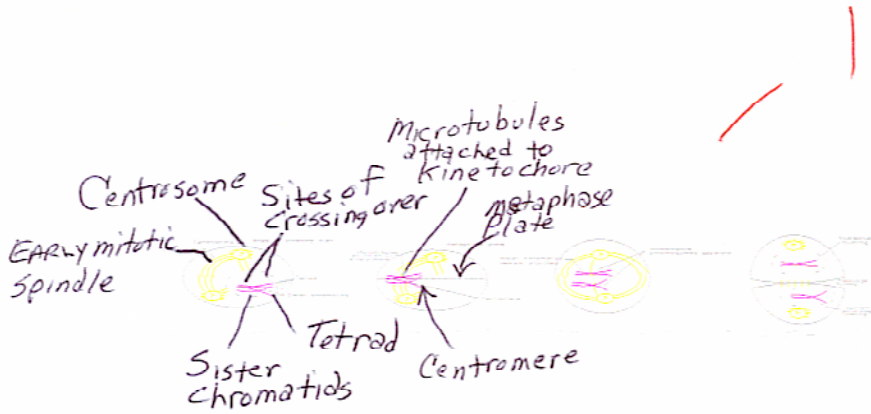 Microtubules
attached to
Kinetochore
Centrosome
Sites of
crossing over
Metaphase
Plate
EARLY mitotic
Spindle
Tetrad
Sister
chromatids
Centromere